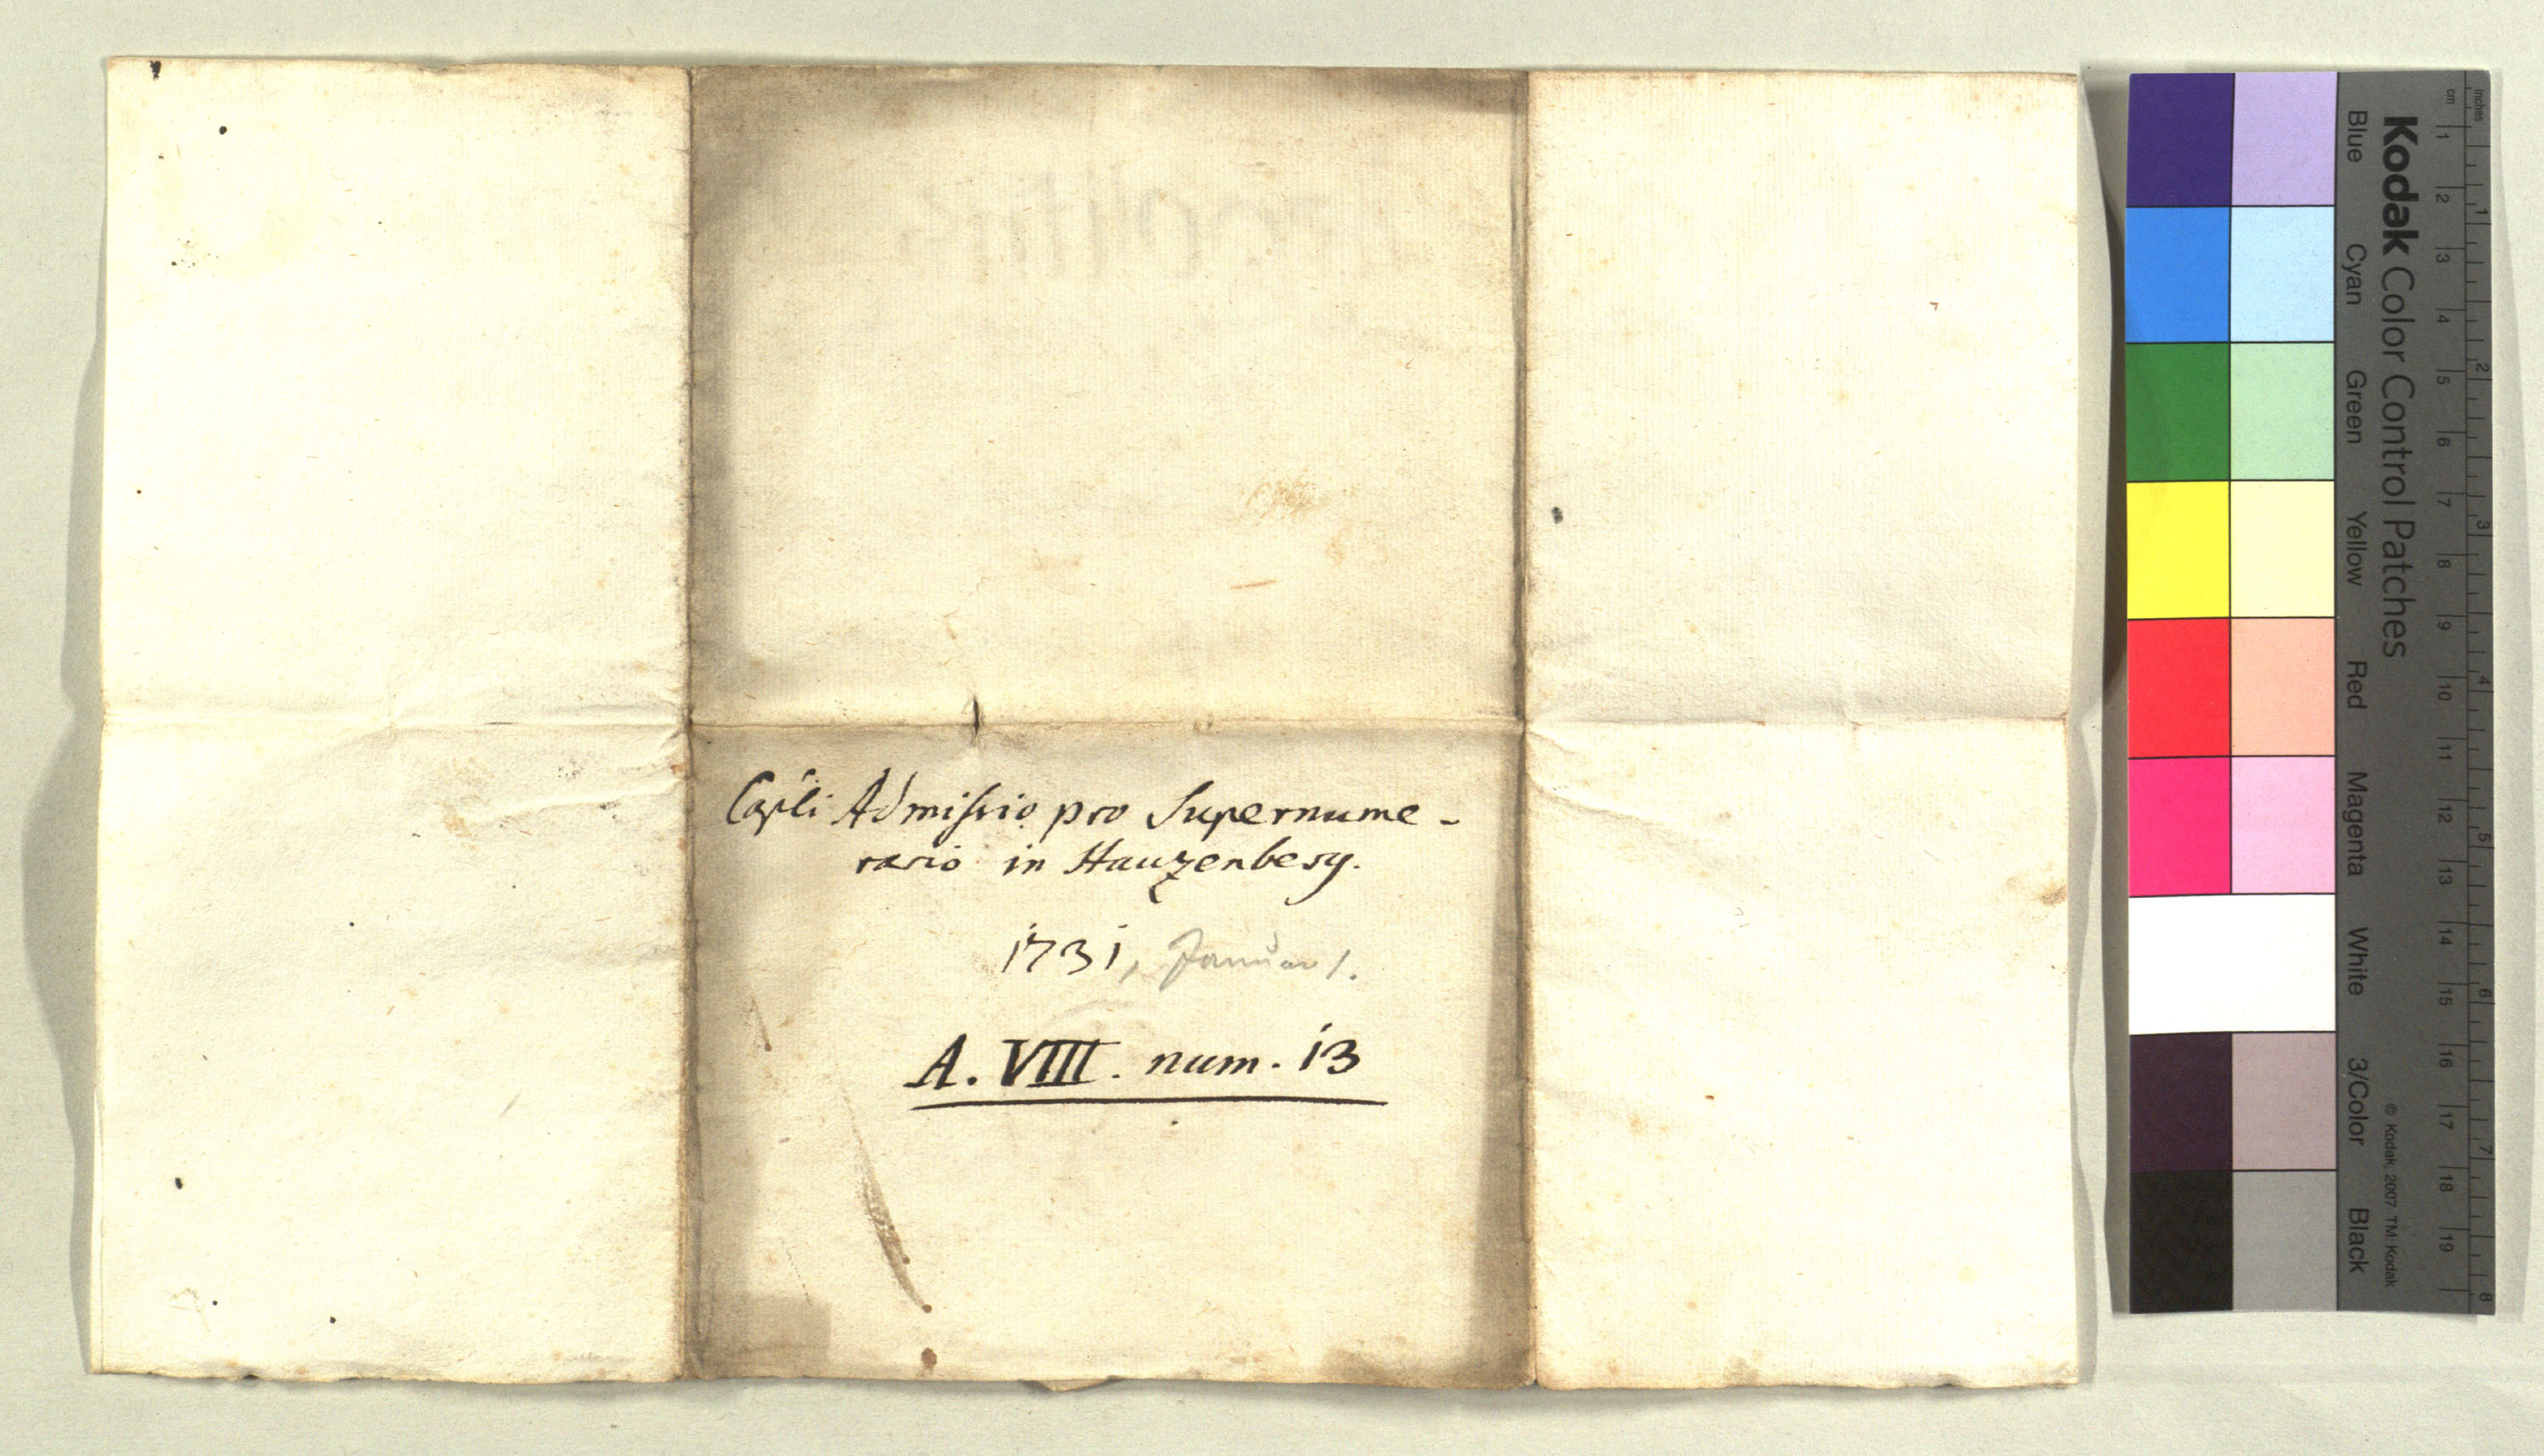 Capli Admissio pro Supernume-
rario in Hauzenberg.
1731, Januar 1.
A. VIII. num. 13
Kodak Color Control Patches
Blue Cyan Green Yellow Red Magenta White 3/Color Black
© Kodak, 2007 TM: Kodak
cm 1 2 3 4 5 6 7 8 9 10 11 12 13 14 15 16 17 18 19
inches 1 2 3 4 5 6 7 8